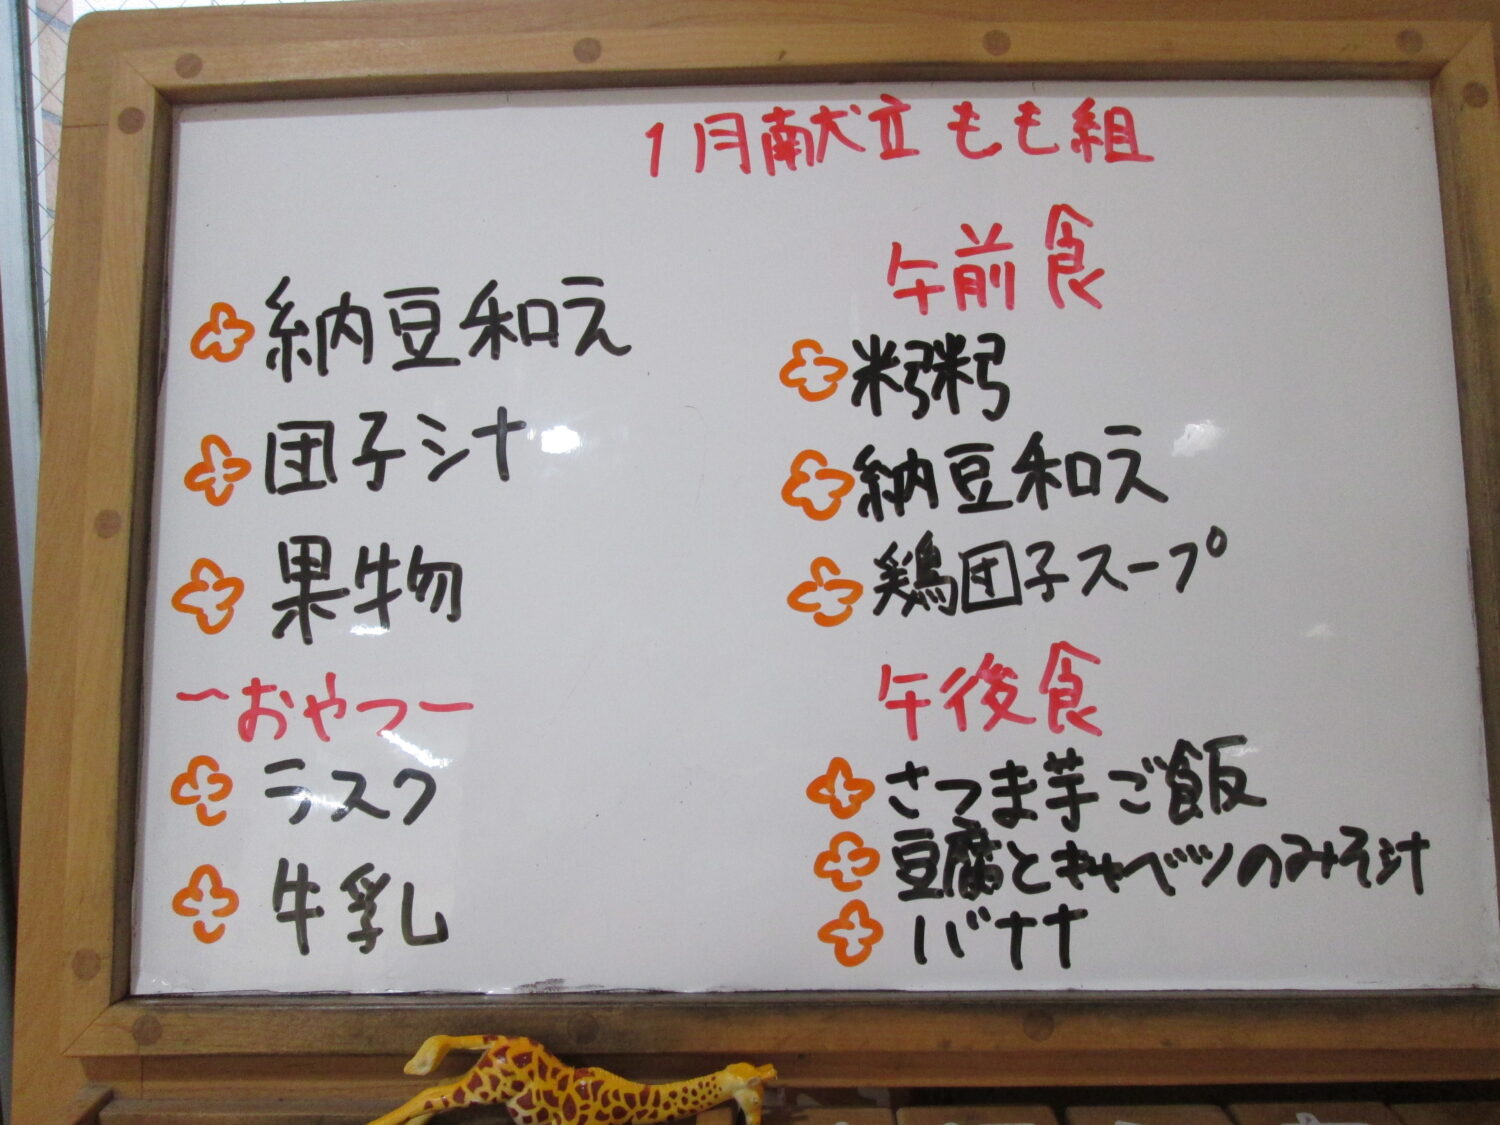 1月献立 もも組
午前食
粥
納豆和え
鶏団子スープ
午後食
さつま芋ご飯
豆腐とキャベツのみそ汁
バナナ
納豆和え
団子汁
果物
～おやつ～
ラスク
牛乳